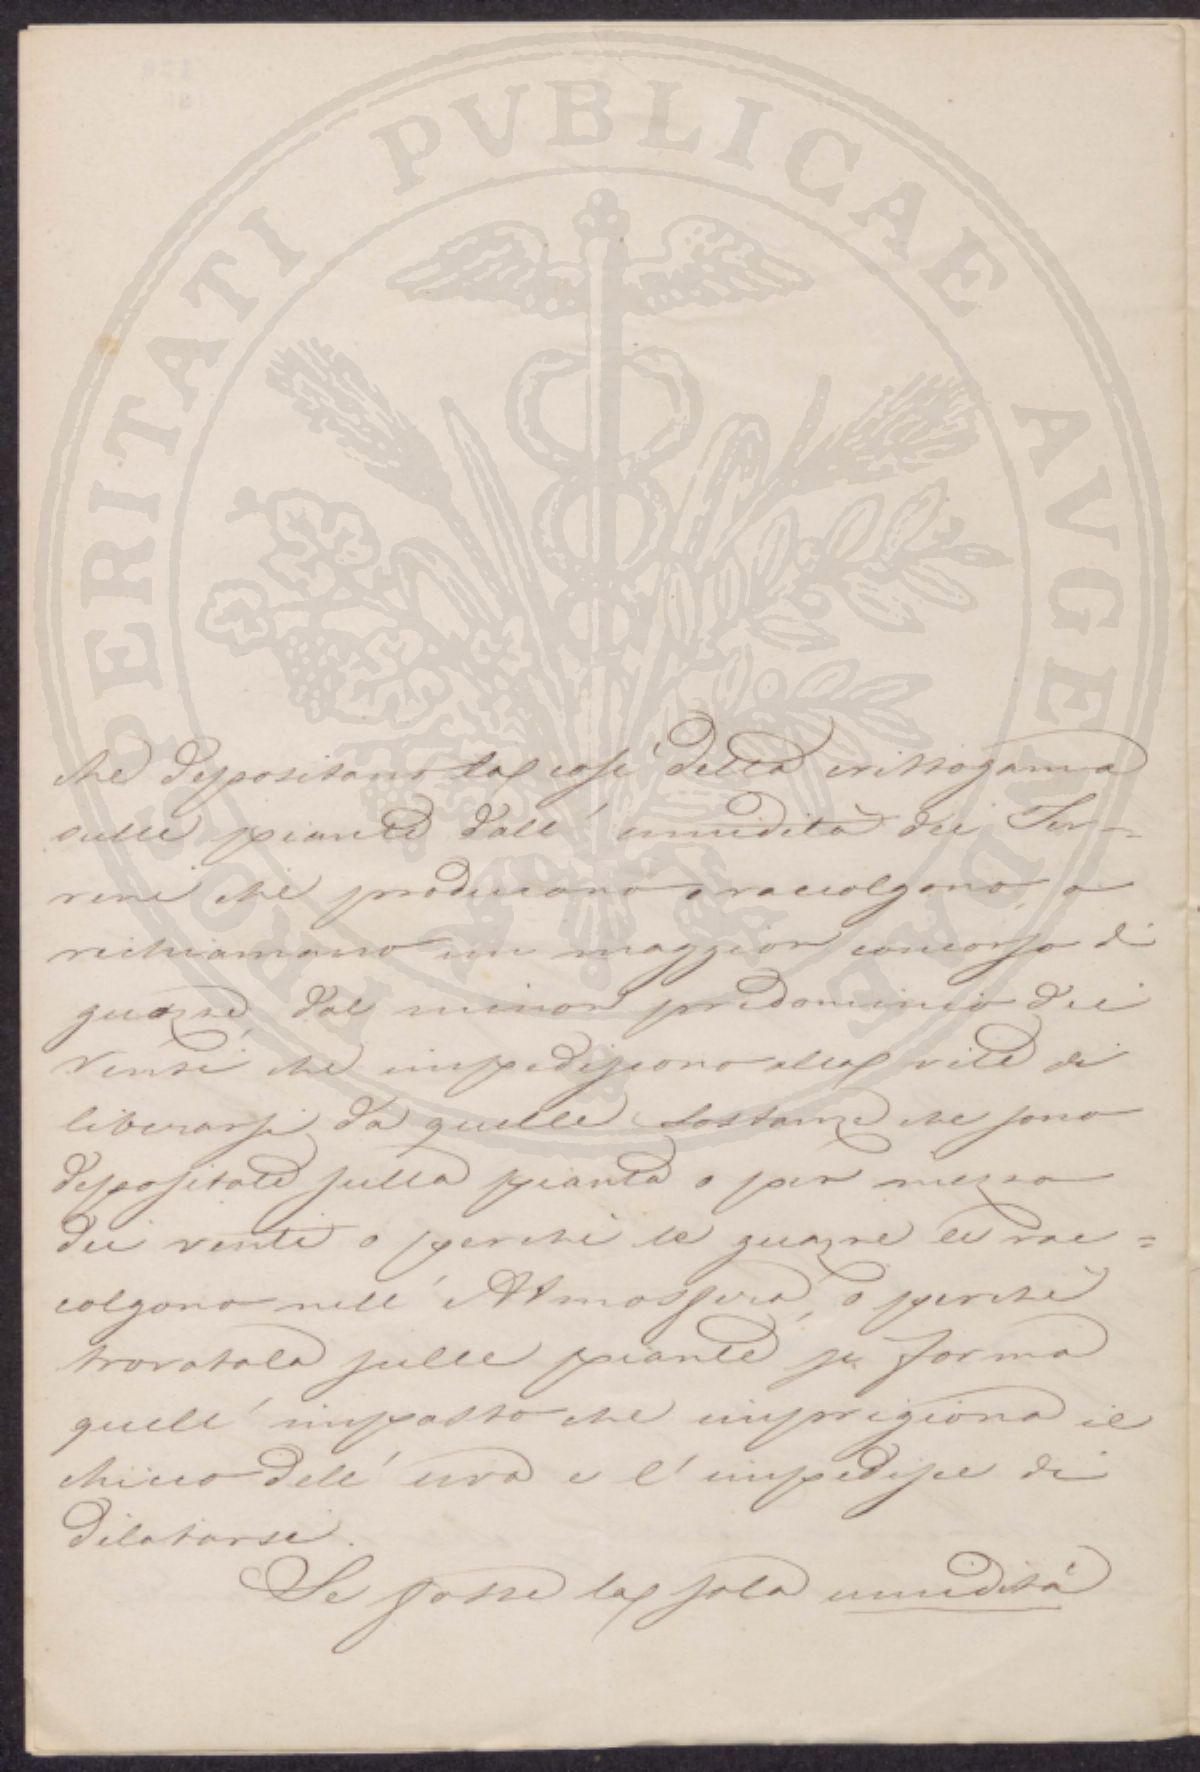 PROSPERITATI PVBLICAE AVGENDAE
che depositano la così detta crittogama
sulle piante dall' umidità dei Ter=
reni che producono o raccolgono, o
richiamano un maggior concorso di
guazze, dal minor predominio dei
Venti che impediscono alla vite di
liberarsi da quelle sostanze che sono
depositate sulla pianta o per mezzo
dei venti o perché le guazze le rac=
colgono nell' Atmosfera, o perchè
trovatala sulle piante si forma
quell' impasto che imprigiona il
chicco dell' uva e l' impedisce di
dilatarsi.
Se fosse la sola umidità